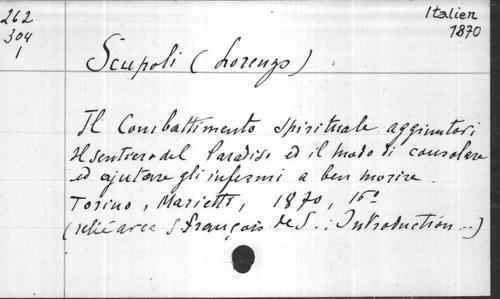 262
304
1
Italien
1870
Scupoli (Lorenzo)
Il Combattimento spirituale aggiuntovi
il sentiero del Paradiso ed il modo di consolare
ed ajutare gli infermi a ben morire.
Torino, Marietti, 1870, 16º
(relié avec S François de S.: Introduction...)